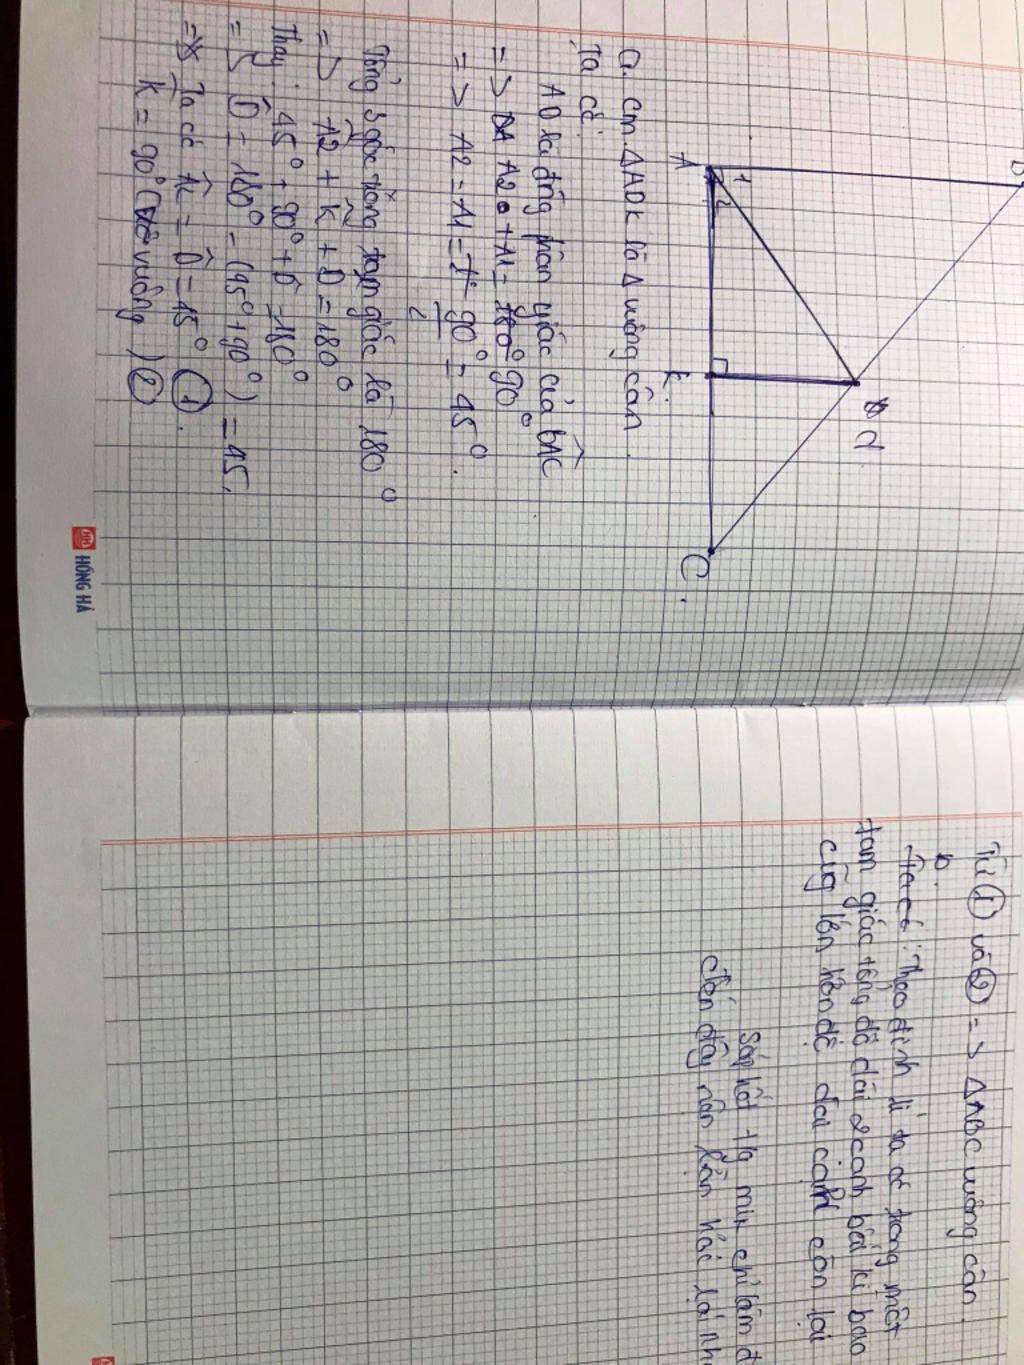 A
1
2
B
K
D
C
a. cm. ΔADK là Δ vuông cân.
Ta có:
AD là đường phân giác của BAC
=> A2 + A1 = 90°
=> A2 = A1 = 90° = 45°.
2
Tổng 3 góc trong tam giác là 180°
=> A2 + K + D = 180°
Thay: 45° + 90° + D = 180°
=> D = 180° - (45° + 90°) = 45.
=> Ta có A2 = D = 45° (1).
K = 90° ( vuông ) (2)
HỒNG HÀ
Từ (1) và (2) => ΔABC vuông cân.
b.
Ta có: Theo định lí ta có trong một
tam giác tổng độ dài 2 cạnh bất kì bao
cũng lớn hơn độ dài cạnh còn lại
Sắp hết tg mik chỉ làm đ
đến đây nên